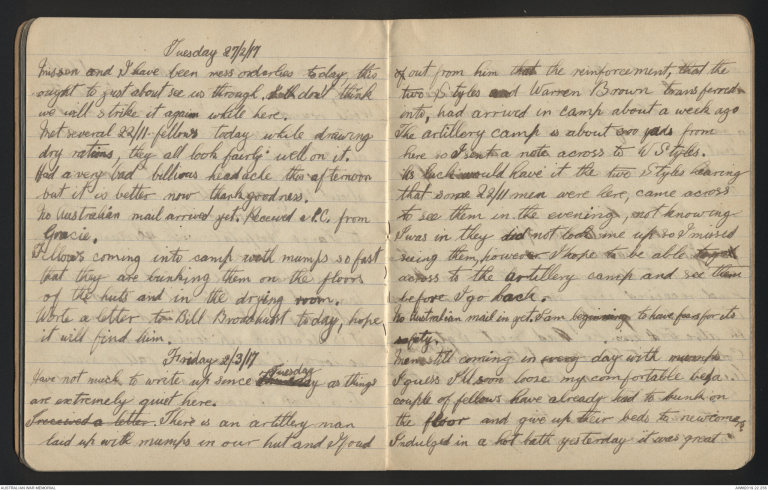 Tuesday 27/2/17
Misson and I have been mess orderlies today, this
ought to just about see us through. Both don't think
we will strike it again while here.
Met several 22/11 fellows today while drawing
dry rations, they all look fairly well on it.
Had a very bad billious headache this afternoon
but it is better now thank goodness.
No Australian mail arrived yet. Received a P.C. from
Gracie.
Fellows coming into camp with mumps so fast
that they are bunking them on the floor
of the huts and in the drying room.
Wrote a letter to Bill Broadhurst today, hope
it will find him.
Friday 2/3/17
Have not much to write up since Tuesday as things
are extremely quiet here.
I received a letter. There is an artillery man
laid up with mumps in our hut and I foud
out from him that the reinforcement, that the
two Styles and Warren Brown transferred
into, had arrived in camp about a week ago
The artillery camp is about 300 yads from
here so I sent a note across to W Styles.
As luck would have it the two Styles hearing
that some 22/11 men were here, came across
to see them in the evening, not knowing
I was in they did not look me up so I missed
seeing them, however I hope to be able to get
across to the artillery camp and see them
before I go back.
No Australian mail in yet. I am beginning to have fears for its
safety.
Men still coming in every day with mumps
I guess I'll soon loose my comfortable bed a
couple of fellows have already had to bunk on
the floor and give up their beds to newcomers
Indulged in a hot bath yesterday it was great
AUSTRALIAN WAR MEMORIAL